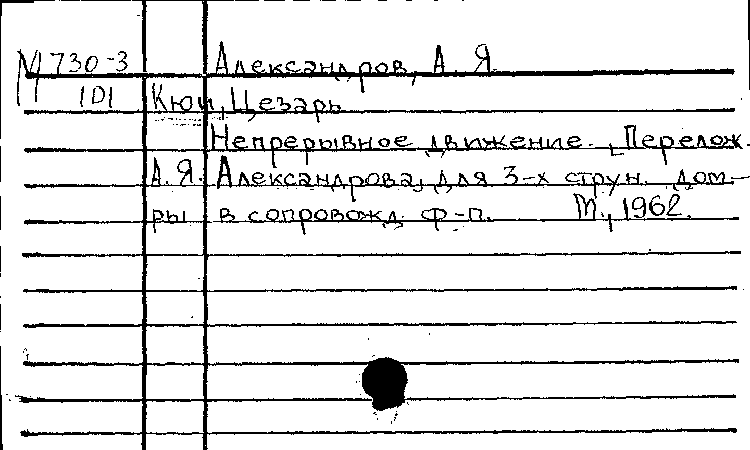 М 730-3 Александров, А. Я.
101 Кюи, Цезарь
Непрерывное движение. Перелож.
А. Я. Александрова, для 3-х струн. дом-
ры в сопровожд. ф-п. М., 1962.